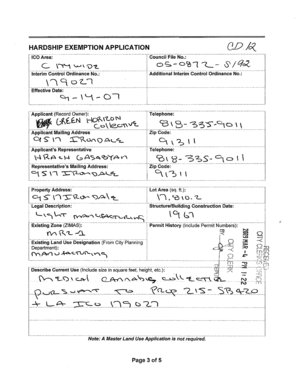 CD 12
HARDSHIP EXEMPTION APPLICATION
ICO Area:
CITYWIDE
Council File No.:
05-0872-S192
Interim Control Ordinance No.:
179027
Additional Interim Control Ordinance No.:
Effective Date:
9-14-07
Applicant (Record Owner):
GREEN HORIZON
Collective
Telephone:
818-335-9011
Applicant Mailing Address
9517 IRONDALE
Zip Code:
91311
Applicant's Representative
HRACH GASABYAN
Telephone:
818-335-9011
Representative's Mailing Address:
9517 IRONDALE
Zip Code:
91311
Property Address:
9517 IRONDALE
Lot Area (sq. ft.):
17,810.2
Legal Description:
LIGHT MANUFACTURING
Structure/Building Construction Date:
1967
Existing Zone (ZIMAS):
MR2-1
Permit History (include Permit Numbers):
Existing Land Use Designation (From City Planning
Department):
MANUFACTURING
Describe Current Use (Include size in square feet, height, etc.):
MEDICAL CANNABIS COLLECTIVE
PURSUANT TO PROP 215 - SB 420
+ LA ICO 179027
RECEIVED
CITY CLERK'S OFFICE
PM 1:22
CITY CLERK
Note: A Master Land Use Application is not required.
Page 3 of 5